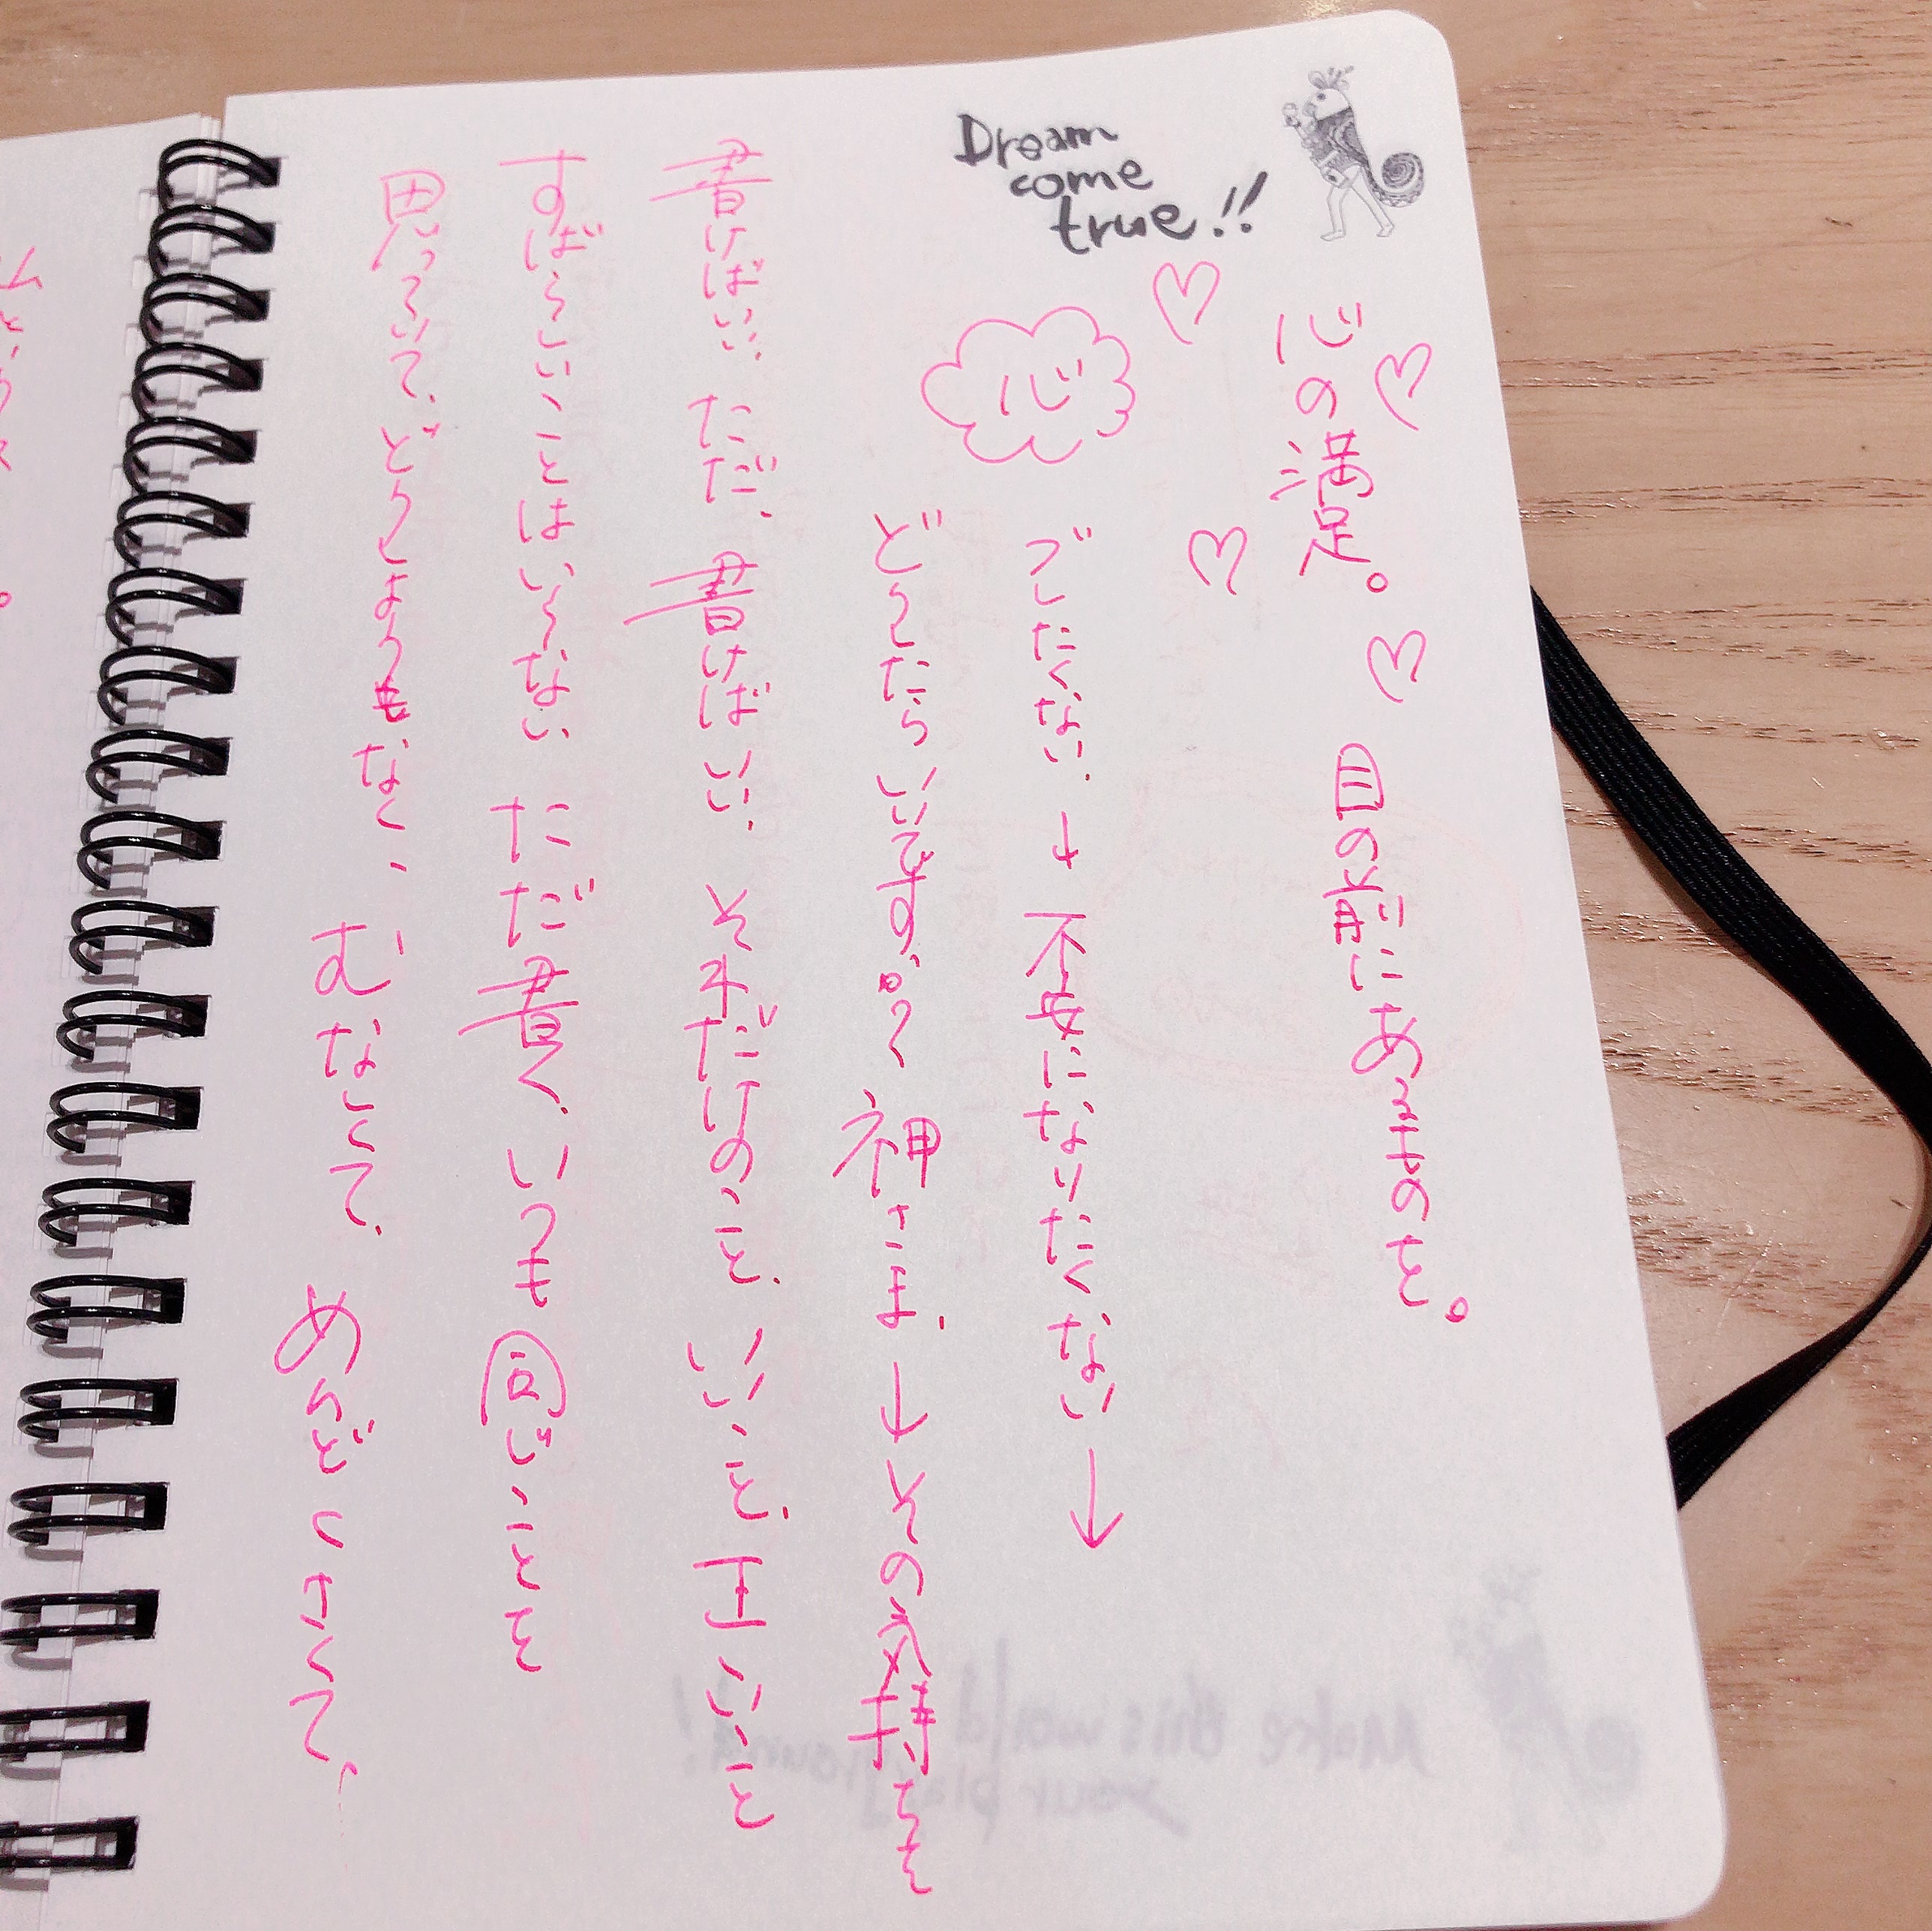 Dream
come
true!!
心の満足。 目の前にあるものを。
心
ブレたくない。→不安になりたくない→
どうしたらいいですか?神さま。→その気持ちを
書けばいい。ただ、書けばいい。それだけのこと。いいこと、正しいこと
すばらしいことはいらない ただ書く。いつも同じことを
思っていて、どうしようもなく、むなしくて、めんどくさくて、